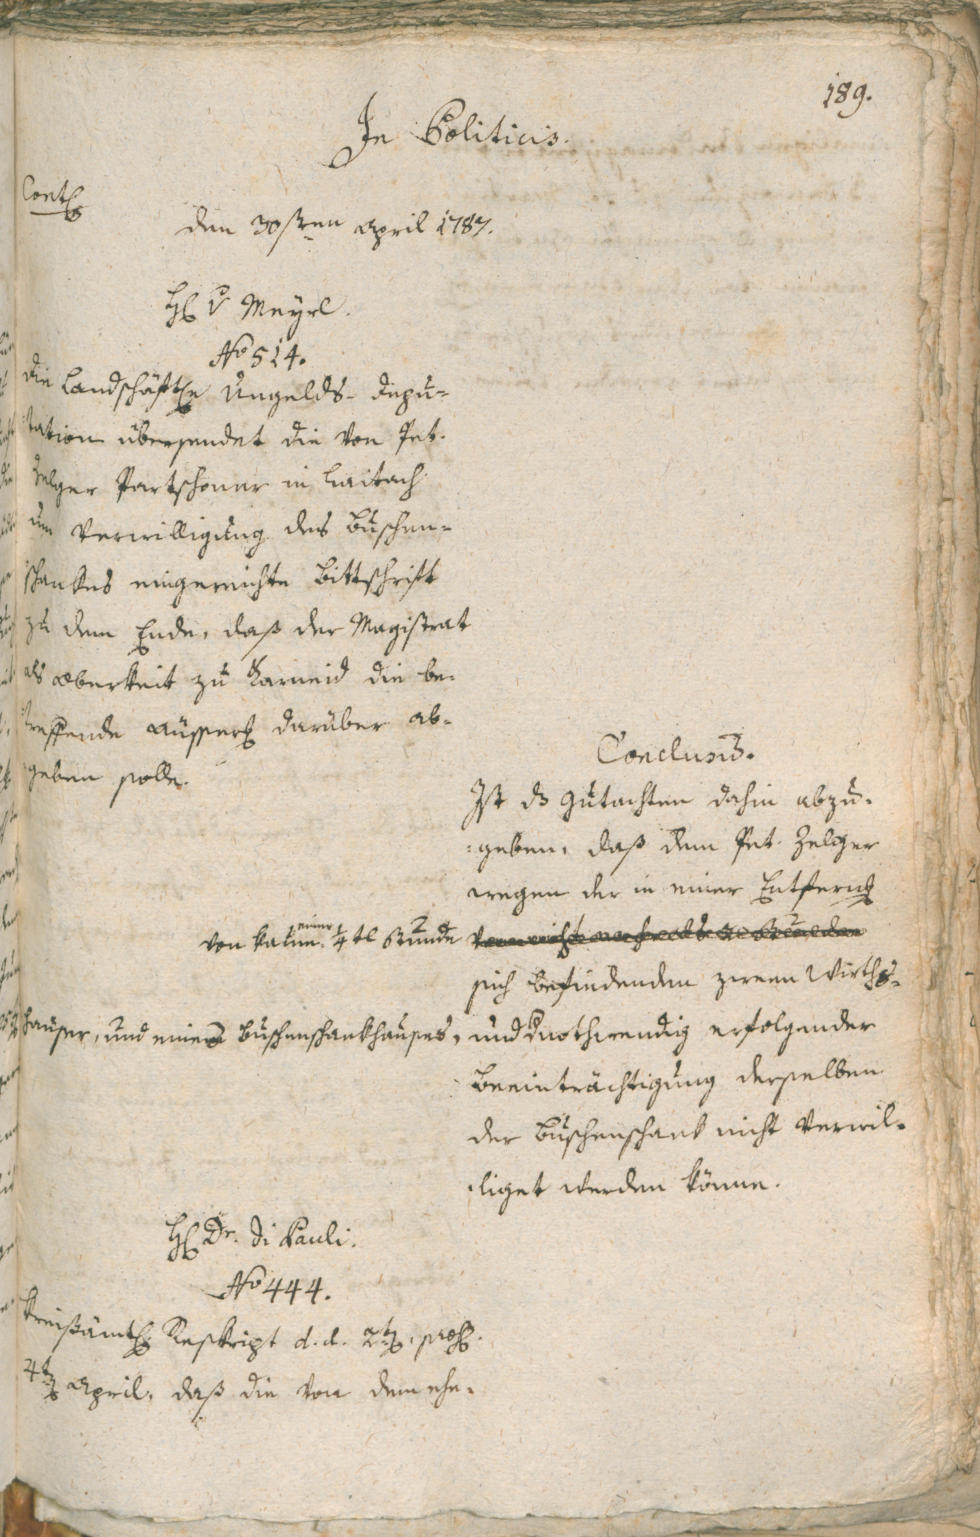 189.
In Politicis.
den 30sten April 1787.
H. v Meyrl.
No 514.
Die Landschäftl. Ungelds-Depu-
tation übersendet die von Pet.
Zelger Partschoner in Laitach
um Verwilligung des Buschen-
schankes eingereichte Bittschrift
zu dem Ende, daß der Magistrat
als Oberkeit zu Karneid die be-
treffende Äusserg darüber ab-
geben solle.
Conclusum.
Ist ds Gutachten dahin abzu-
geben, daß dem Pet. Zelger
wegen der in einer Entferng
von kaum einer 1/4tl Stunde
sich befindenden zween Wirths-
häuser, und eines Buschenschankhauses, und nothwendig erfolgender
Beeinträchtigung derselben
der Buschenschank nicht verwil-
liget werden könne.
H. Dr. di Pauli.
No 444.
Kreißämtl. Reskript d. d. 2t. pras.
4t April, daß die von dem ehe-